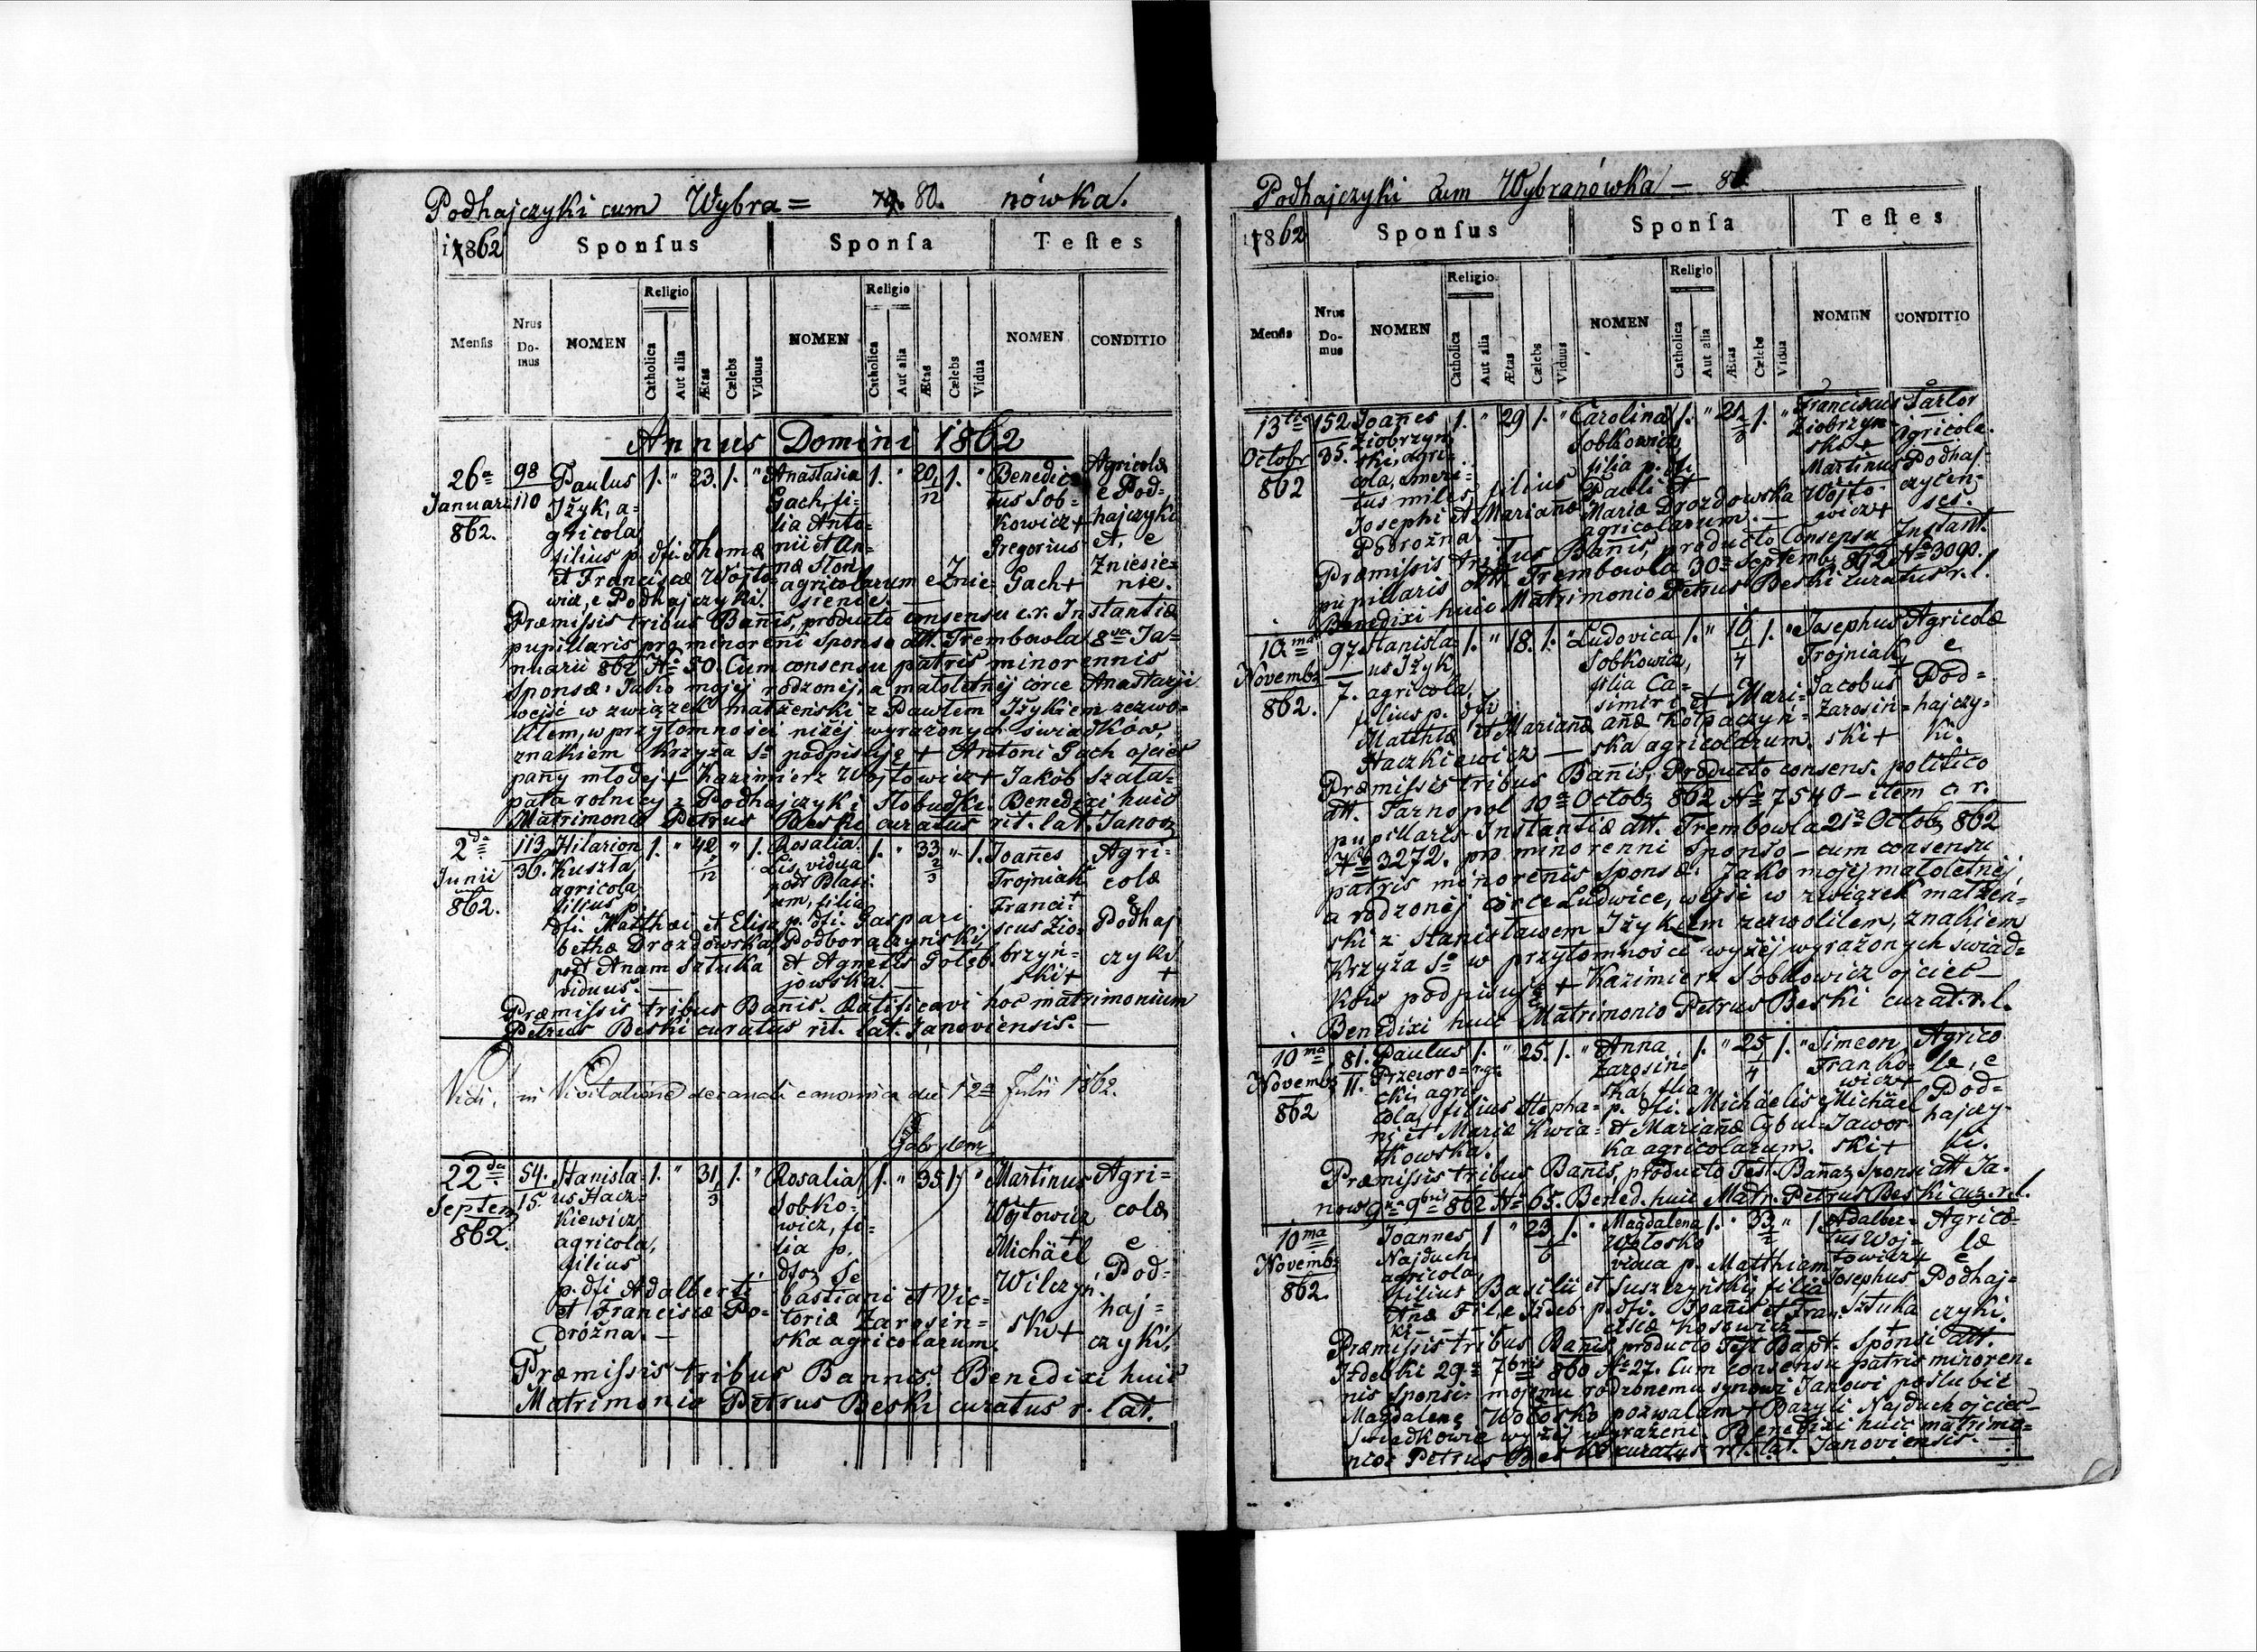 Podhajczyki cum Wybra= 80. nówka.
1862 Sponsus Sponsa Testes
Mensis Nrus Do-mus NOMEN Religio Catholica Aut alia Ætas Cælebs Viduus NOMEN Religio Catholica Aut alia Ætas Cælebs Vidua NOMEN CONDITIO
Annus Domini 1862
26a Januarii 862.
98 110
Paulus
Iżyk, a-
gricola
filius p. dfi. Thomæ
et Franciscæ Wojto-
wicz, e Podhajczyki.
1. " 23. 1. "
Anastasia
Gach, fi-
lia Anto-
nii et An-
næ Słoń
agricolarum e Znie-
sienie.
1. " 20/12 1. "
Benedic-
tus Sob-
kowicz +
Gregorius
Gach +
Agricolæ
e Pod-
hajczyki
et, e
Zniesie-
nie.
Præmissis tribus Banis, producto consensu c.r. Instantiæ
pupillaris pro minorenni Sponso dtt. Trembowla 8va Ja-
nuarii 862 No 50. Cum consensu patris minorennis
Sponsæ: Jako mojej rodzonej, a małoletniej córce Anastazji
wejść w związek małżeński z Pawłem Iżykiem zezwo-
liłem, w przytomności niżej wyrażonych świadków,
znakiem Krzyża So podpisuję + Antoni Gach ojciec
pany młodej + Kazimierz Wojtowicz + Jakób Szała-
pata rolnicy z Podhajczyki Słobudki. Benedixi huic
Matrimonio Petrus Beski curatus rit. lat. Janov
2da Junii 862.
113 36.
Hilarion
Kuszla
agricola
filius p.
dfi. Matthæi et Elisa-
bethæ Drozdowska,
post Anam Sztuka
viduus. —
1. " 42/12 " 1.
Rosalia
Lis, vidua
post Blasi-
um, filia
p. dfi. Gaspari
Podboraczyński,
et Agnetis Gołęb-
jowska. —
1. " 33 2/3 " 1.
Joañes
Trojniak
Francis-
cus Zio-
brzyń-
ski +
Agri-
colæ
e
Podhaj
czyki
+
Præmissis tribus Banis. Ratificavi hoc matrimonium
Petrus Beski curatus rit. lat. Janoviensis. —
Vidi, in Visitatione decanali canonica die 12a Julii 1862.
22da Septem 862.
54. 15.
Stanisla-
us Hacz-
kiewicz
agricola,
filius
p. dfi Adalberti
et Franciscæ Po-
dróżna. —
1. " 31/3 1. "
Rosalia
Sobko-
wicz, fi-
lia p.
Se
bastiani et Vic-
toriæ Zarosin-
ska agricolarum.
1. " 35 1. "
Martinus
Wojtowicz
+
Michäel
Wilczyń-
ski +
Agri-
colæ
e
Pod-
haj-
czyki.
Præmissis tribus Bannis. Benedixi huic
Matrimonio Petrus Beski curatus r. lat.
Podhajczyki cum Wybranówka — 81
1862 Sponsus Sponsa Testes
Mensis Nrus Do-mus NOMEN Religio Catholica Aut alia Ætas Cælebs Viduus NOMEN Religio Catholica Aut alia Ætas Cælebs Vidua NOMEN CONDITIO
13tia Octobr 862
152 35.
Joañes
Ziobrzyń
ski, agri-
cola, emeri-
tus miles, filius
Josephi et Marianæ
Podrożna. —
1. " 29 1. "
Carolina
Sobkowicz
filia p. dfi
Pauli et
Mariæ Drozdowska
agricolarum. —
1. " 21 1. "
Franciscus
Ziobrzyn-
ski +
Martinus
Wojto-
wicz +
Sartor
Agricola.
Podhaj-
czycen-
ses.
Præmissis tribus Banis, producto Consensu Instant.
pupillaris dtt. Trembowla 30a Septemb. 862 No 3090.
Benedixi huic Matrimonio Petrus Beski curatus r. l.
10ma Novemb 862.
97 7.
Stanisla-
us Iżyk
agricola,
filius p. dfi
Matthiæ et Marianæ
Haczkiewicz —
1. " 18. 1. "
Ludovica
Sobkowicz,
filia Ca-
simiri et Mari-
anæ Kołpaczyń-
ska agricolarum.
1. " 16/4 1. "
Josephus
Trojniak +
Jacobus
Zarosin-
ski +
Agricolæ
e
Pod-
hajczy-
ki.
Præmissis tribus Banis, Producto consens. politico
dtt. Tarnopol 10a Octob 862 No 7540 — item c. r.
pupillaris Instantiæ dtt. Trembowla 21a Octob 862
No 3272. pro minorenni Sponso — cum consensu
patris minorenis Sponsæ: Jako mojej małoletniej,
a rodzonej córce Ludwice, wejść w związek małżeń-
ski z Stanisławem Iżykiem zezwoliłem, znakiem
Krzyża So w przytomności wyżej wyrażonych świad-
ków podpisuję + Kazimierz Sobkowicz ojciec —
Benedixi huic Matrimonio Petrus Beski curat. r. l.
10ma Novemb 862
81. 11.
Paulus
Przewro-
cki, agri-
cola, filius Stepha-
ni et Mariæ Kwia-
tkowska.
1. " 25. 1. "
Anna
Zarosin-
ska, filia
p. dfi. Michäelis
et Marianæ Cybul-
ka agricolarum.
1. " 25/4 1. "
Simeon
Franko-
wicz +
Michäel
Jawor
ski +
Agrico
læ, e
Pod-
hajczy-
ki.
Præmissis tribus Banis, producto Test. Banaz Sponsi dtt Ja-
now 9na 9bris 862 No 65. Bened. huic Matr. Petrus Beski cur. r. l.
10ma Novemb 862.
Joannes
Najduch
agricola,
filius Basilii et
Anæ File Izdeb-
ki — —
1 " 23/6 1. "
Magdalena
Wołosko
vidua p. Matthiam
Suszczyński, filia
p. dfi. Joanis et Fran-
ciscæ Kosowicz —
1. " 33/2 " 1.
Adalber-
tus Woj-
towicz +
Josephus
Sztuka
+
Agrico-
læ
e
Podhaj-
czyki.
Præmissis tribus Banis producto Test Bapt. Sponsi dtt.
Izdebki 29a 7bris 860 No 27. Cum consensu patris minoren-
nis Sponsi: mojemu rodzonemu synowi Janowi poślubić
Magdalenę Wołosko pozwalam + Bazyli Najduch ojciec —
Świadkowie wyżej wyrażeni. Benedixi huic matrimo-
nio: Petrus Beski curatus rit. lat. Janoviensis. —